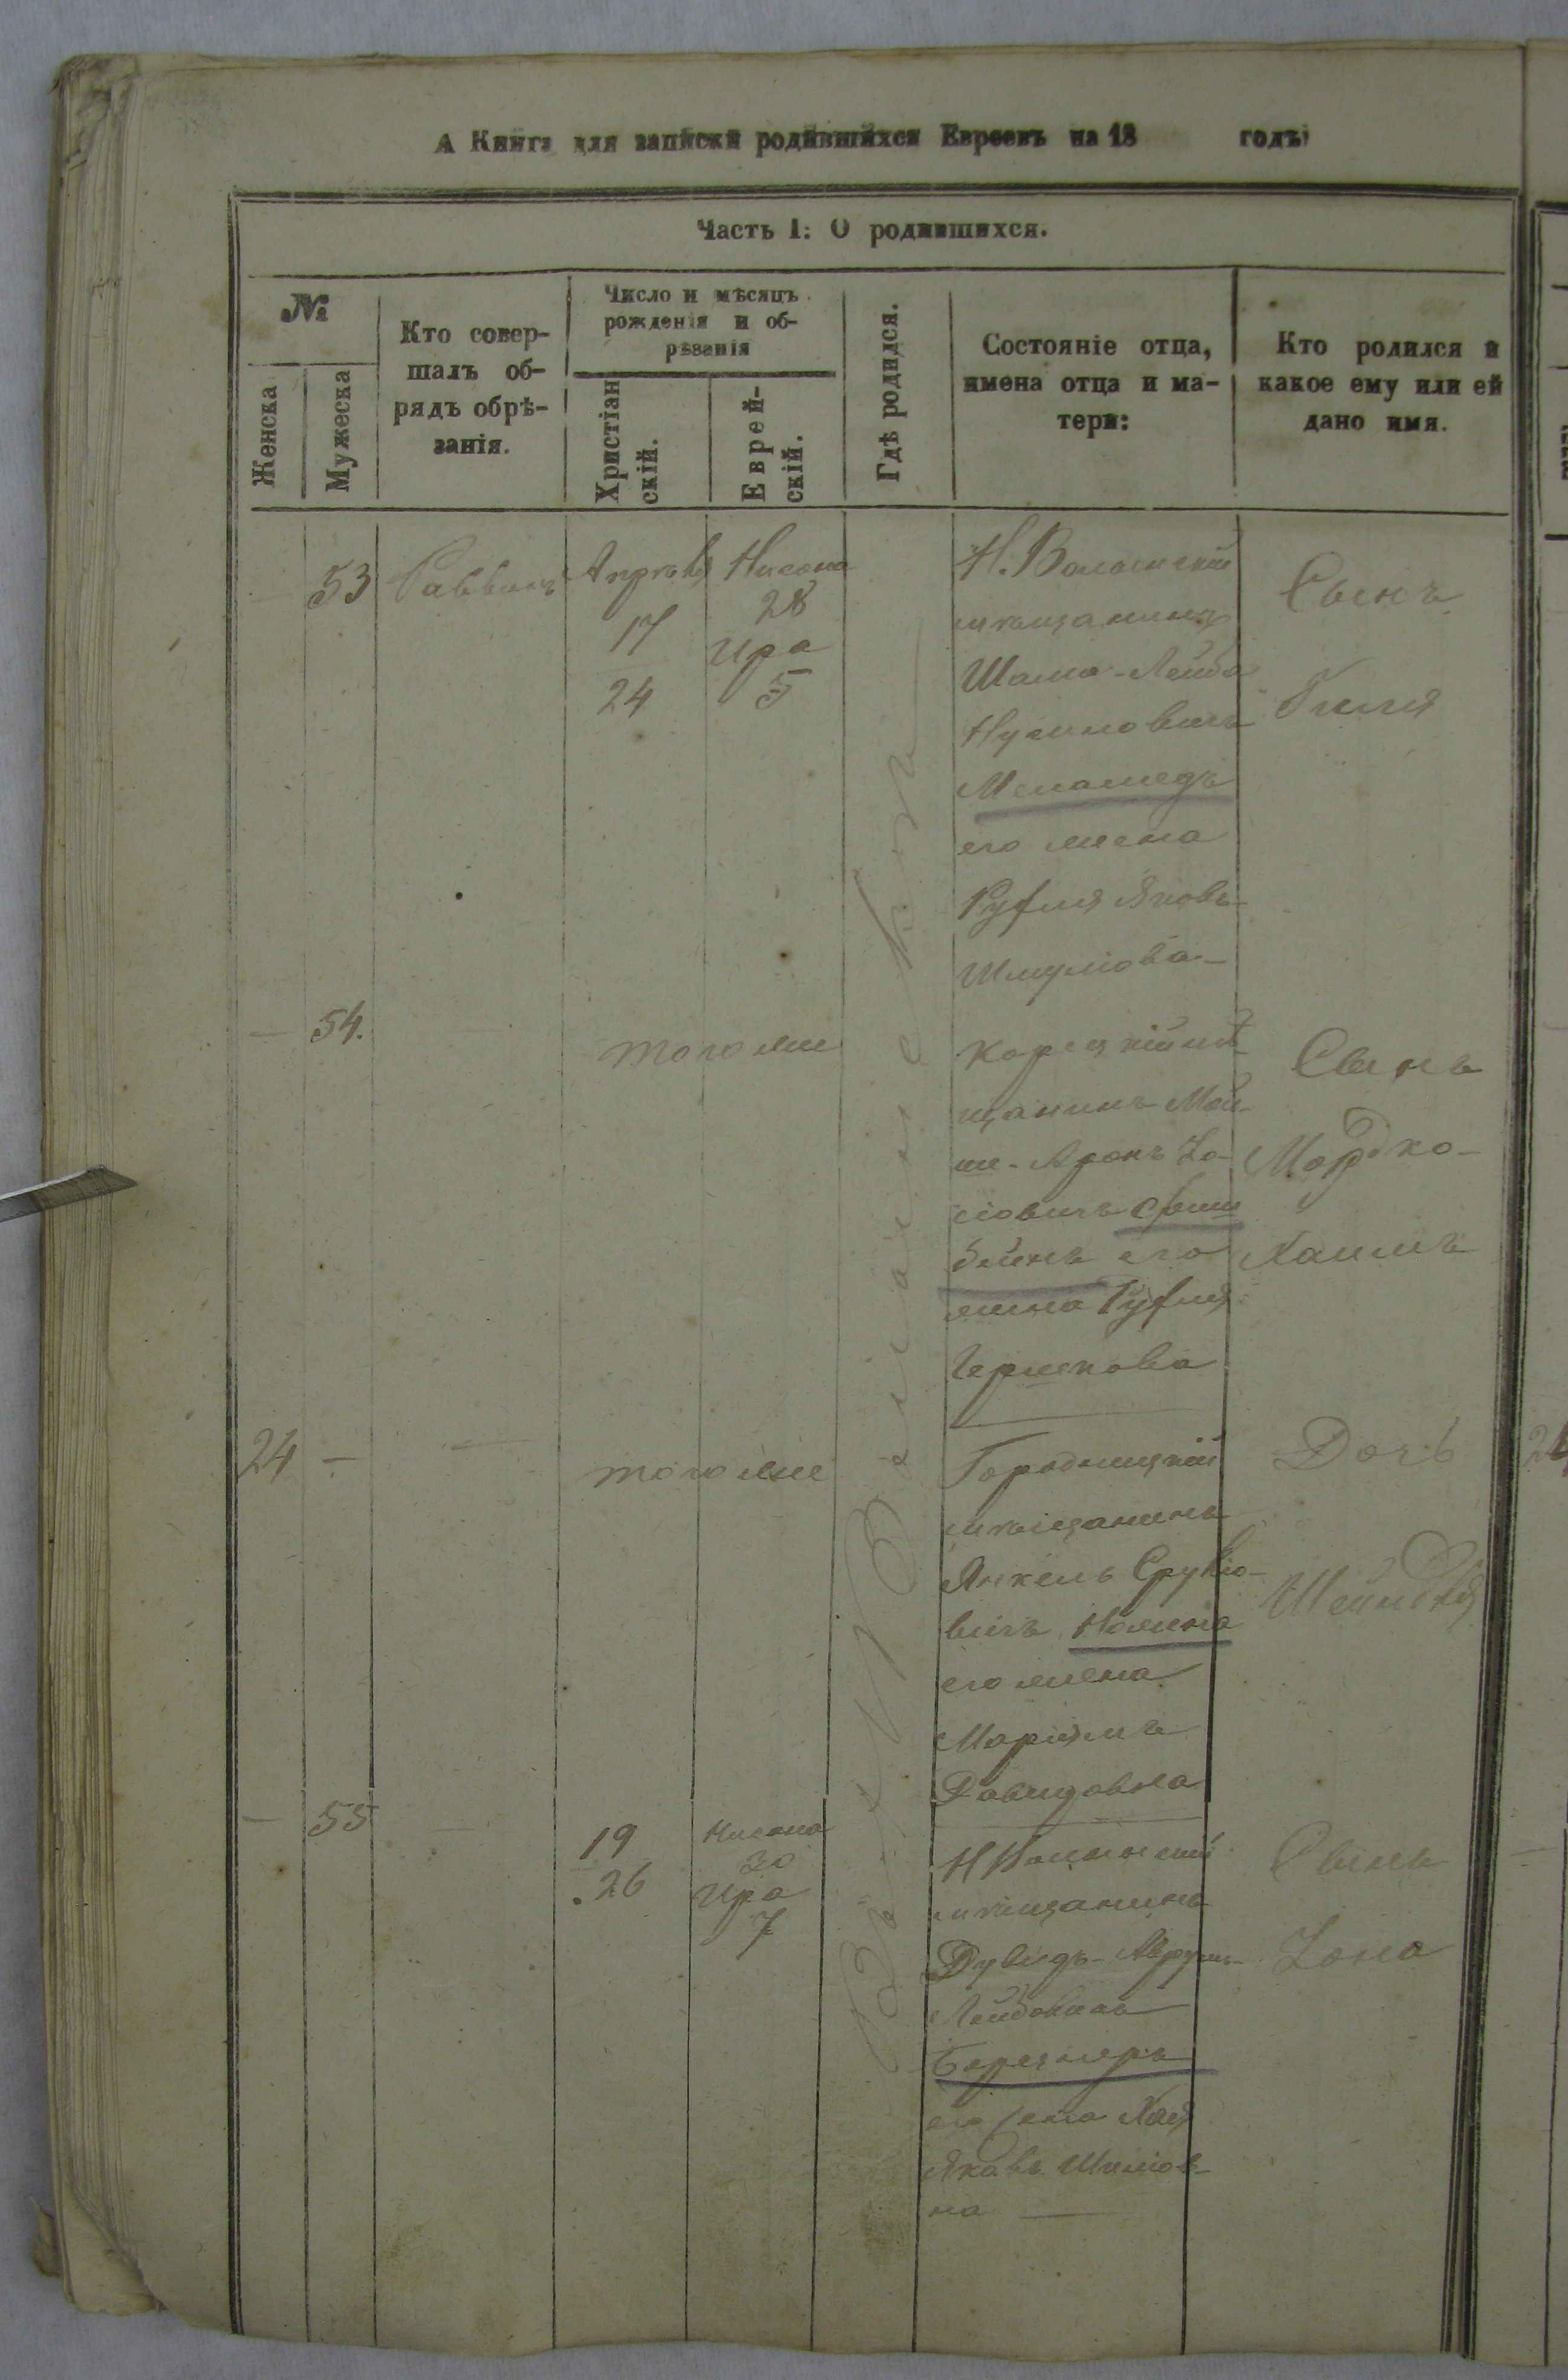 А Книга для записки родившихся Евреевъ на 18 годъ
Часть I: О родившихся.
№
Женска
Мужеска
Кто совер-
шалъ об-
рядъ обрѣ-
занія.
Число и мѣсяцъ
рожденія и об-
рѣзанія
Христіан
скій.
Еврей-
скій.
Гдѣ родился.
Состояніе отца,
имена отца и ма-
тери:
Кто родился и
какое ему или ей
дано имя.
53
Раввинъ
Апрѣля
17
24
Нисона
28
Ира
5
Н. Волынскій
мѣщанинъ
Шама-Лейба
Нусиновичъ
Меламедъ
его жена
Рухля Яковъ-
Шмулiова
Сынъ
54.
тогоже
Корецкій мѣ
щанинъ Мой
ше-Аронъ Іо-
его
жена Рухля
Гершкова
Сынъ
Мордко-
Хаимъ
24 —
тогоже
Городницкій
мѣщанинъ
Янкель Сруліо-
вичъ
его жена
Маріямъ
Давидовна
Дочь
Шейндля
55
19
26
Нисона
30
Ира
7
Н Волынскій
мѣщанинъ
Дувидъ-Аврумъ-
Лейбовичъ
Березнеръ
его жена Хая
Яковъ Шиміов-
на
Сынъ
Іона